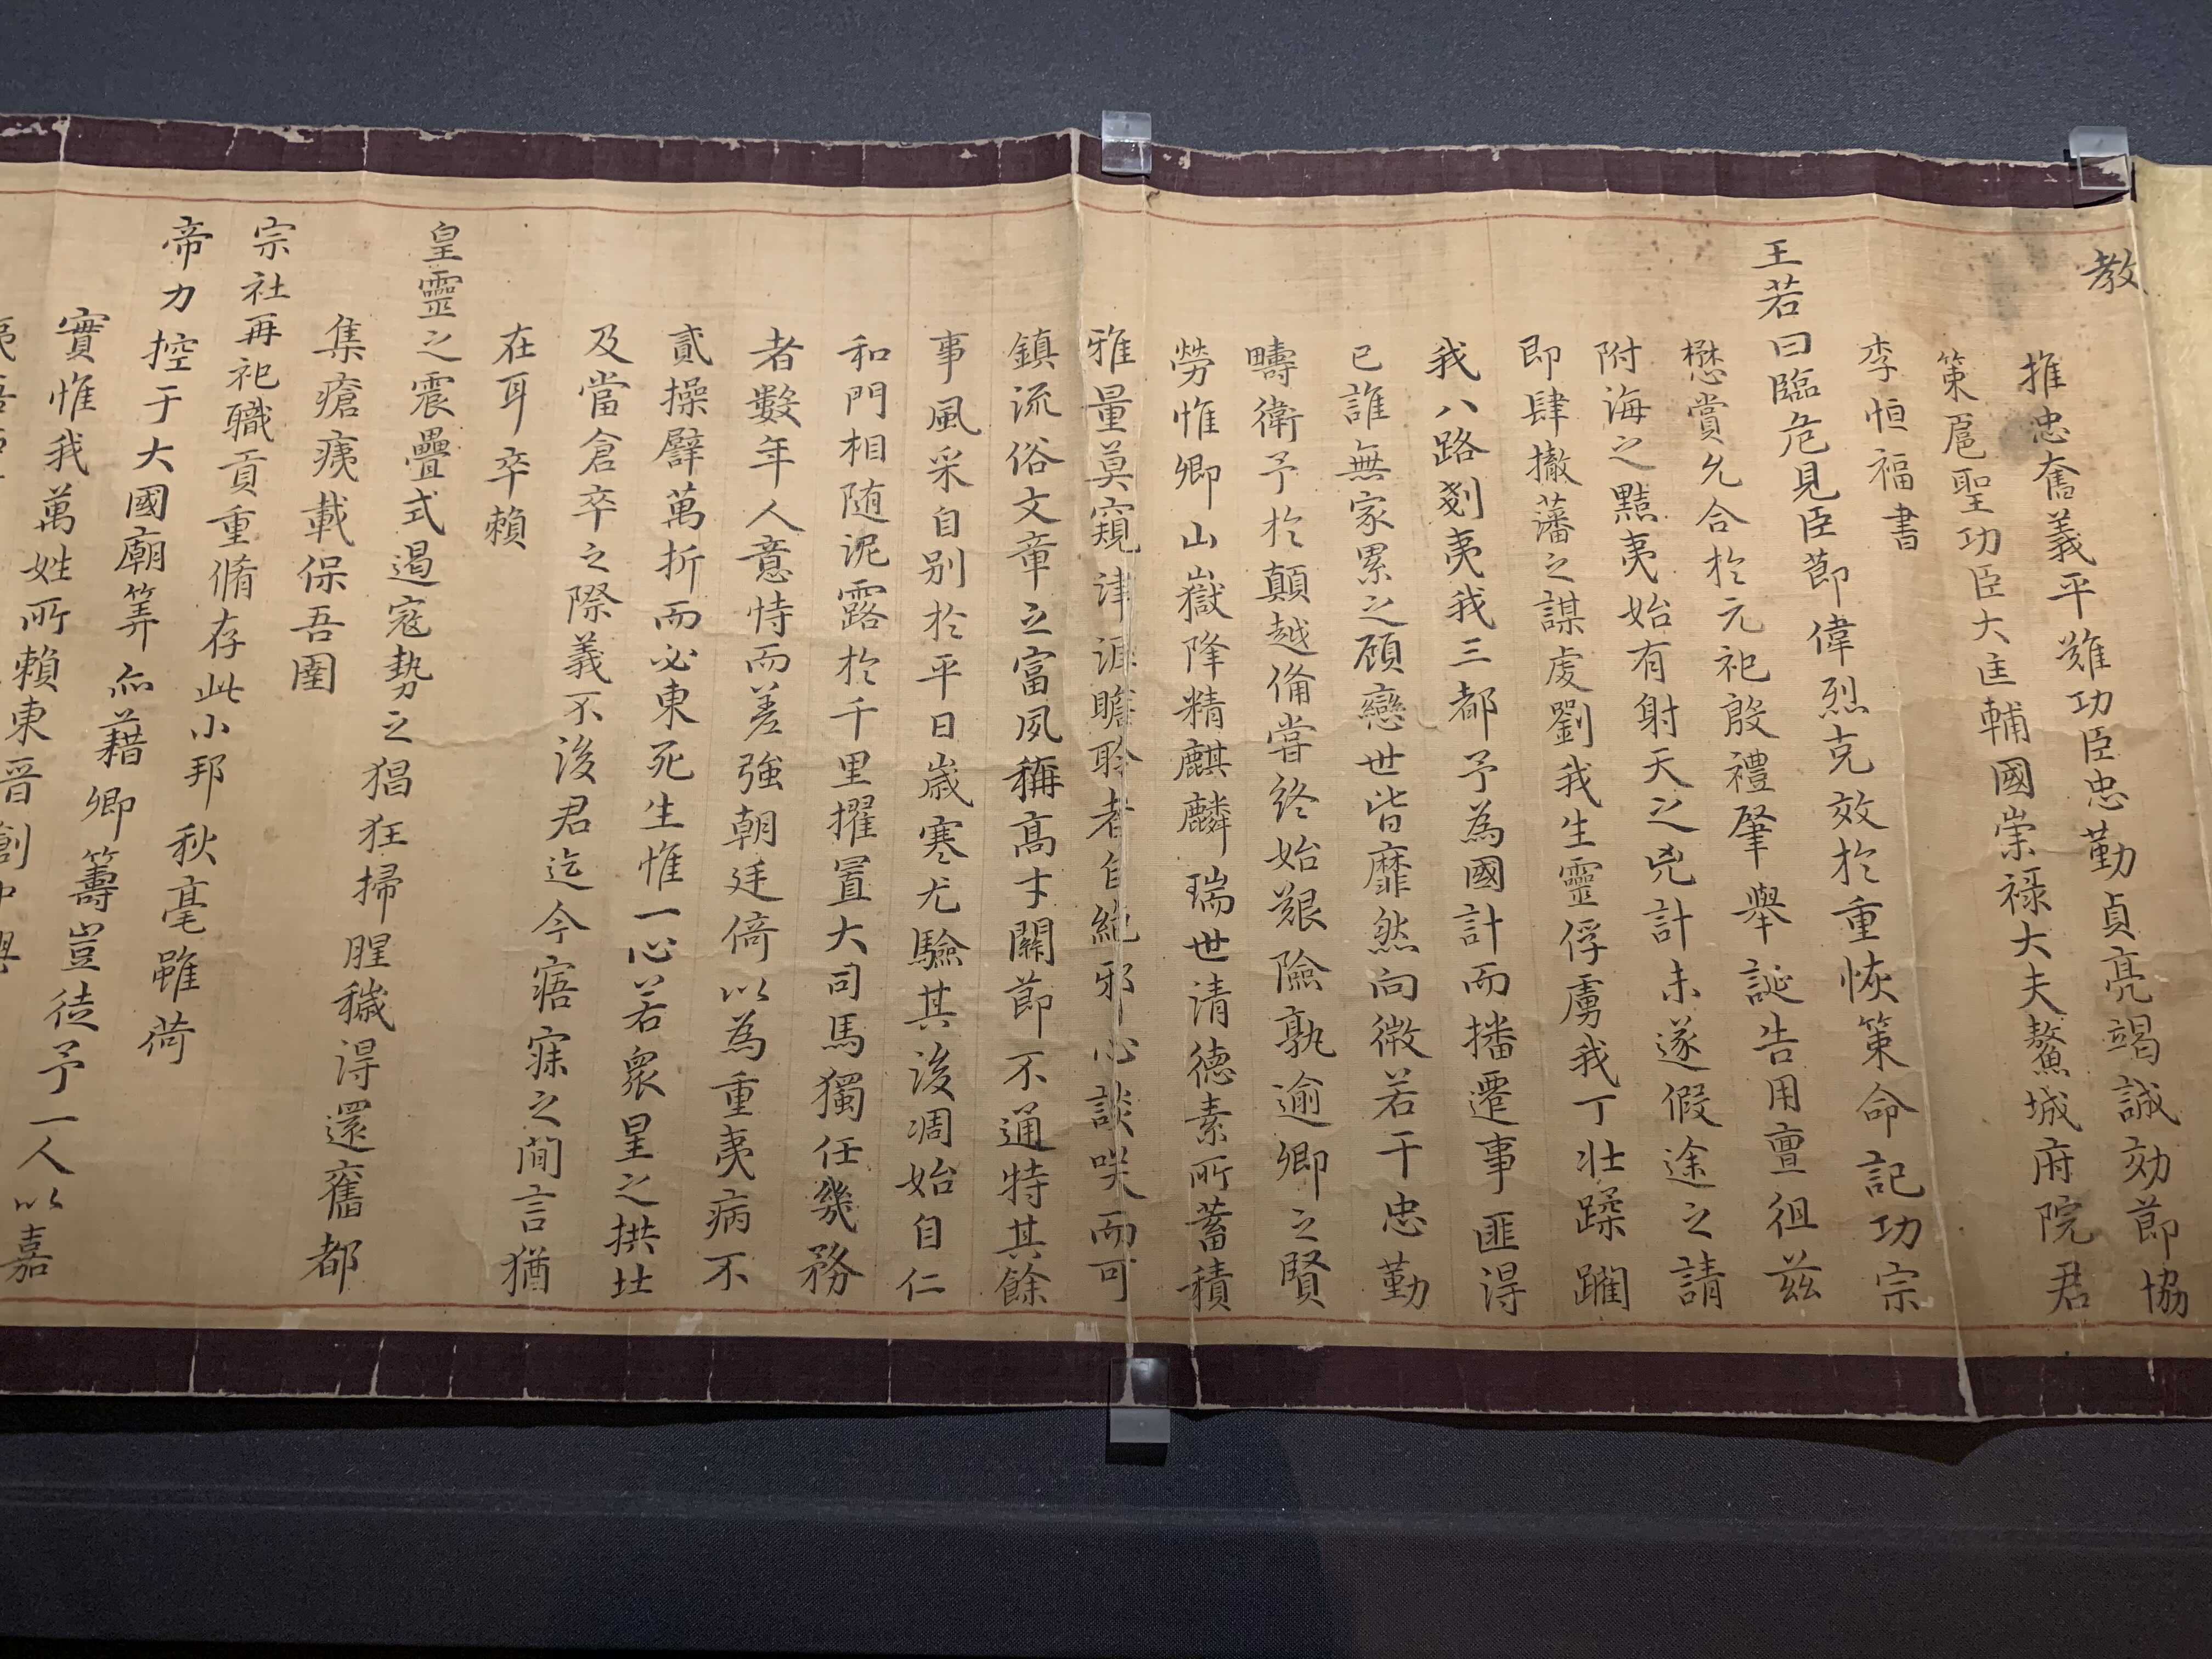 教
推忠奮義平難功臣忠勤貞亮竭誠効節協
策扈聖功臣大匡輔國崇祿大夫鰲城府院君
李恒福書
王若曰臨危見臣節偉烈克效於重恢策命記功宗
懋賞允合於元祀殷禮肇舉誕告用亶徂茲
附海之黠夷始有射天之兇計未遂假途之請
即肆撤藩之謀虔劉我生靈俘虜我丁壯蹂躙
我八路剗夷我三都予為國計而播遷事匪得
已誰無家累之顧戀世皆靡然向微若干忠勤
疇衛予於顛越備嘗終始艱險孰逾卿之賢
勞惟卿山嶽降精麒麟瑞世清德素所蓄積
雅量莫窺津涯瞻聆者自絶邪心談咲而可
鎮流俗文章之富夙稱高才關節不通特其餘
事風采自别於平日歲寒尤驗其後凋始自仁
和門相随泥露於千里擢置大司馬獨任幾務
者數年人意恃而差強朝廷倚以為重夷病不
貳操罄萬折而必東死生惟一心若衆星之拱北
及當倉卒之際義不後君迄今寤寐之間言猶
在耳卒賴
皇靈之震疊式遏寇勢之猖狂掃腥穢得還舊都
集瘡痍載保吾圉
宗社再祀職貢重脩存此小邦秋毫雖荷
帝力控于大國廟筭亦藉卿籌豈徒予一人以嘉
實惟我萬姓所賴東晋創中興